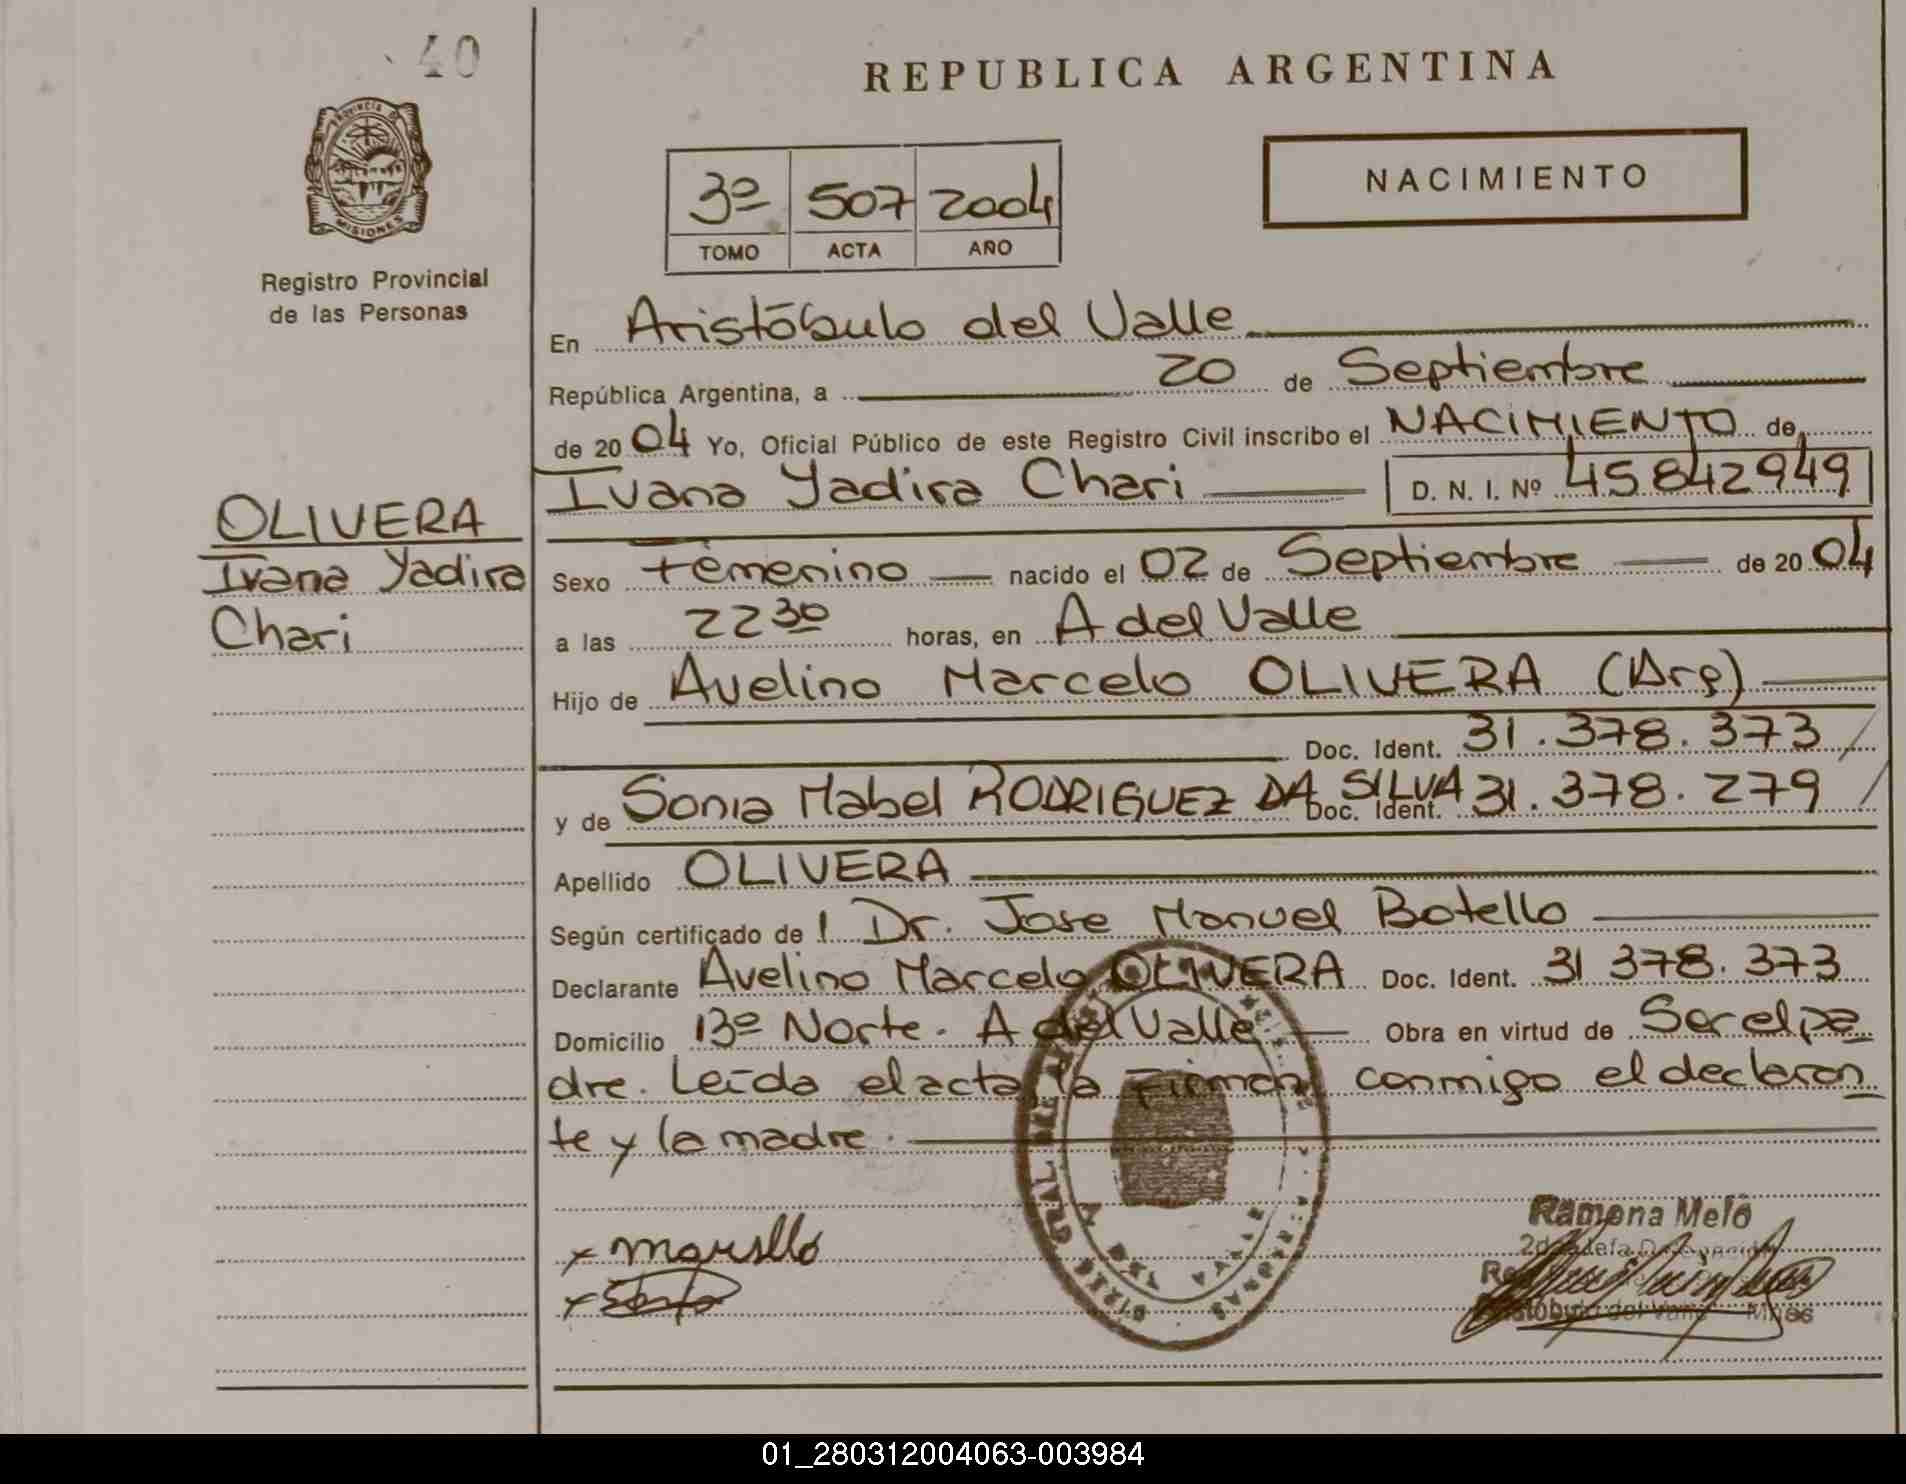 40
PROVINCIA DE
MISIONES
Registro Provincial
de las Personas
OLIVERA
Ivana Yadira
Chari
REPUBLICA ARGENTINA
3º 507 2004
TOMO ACTA AÑO
NACIMIENTO
En Aristóbulo del Valle
República Argentina, a 20 de Septiembre
de 2004 Yo, Oficial Público de este Registro Civil inscribo el NACIMIENTO de
Ivana Yadira Chari D. N. I. Nº 45842949
Sexo Femenino nacido el 02 de Septiembre de 2004
a las 22 30 horas, en A del Valle
Hijo de Avelino Marcelo OLIVERA (Arg)
Doc. Ident. 31.378.373
y de Sonia Mabel RODRIGUEZ DA SILVA Doc. Ident. 31.378.279
Apellido OLIVERA
Según certificado de l Dr. Jose Manuel Botello
Declarante Avelino Marcelo OLIVERA Doc. Ident. 31 378.373
Domicilio 13º Norte. A del Valle Obra en virtud de Ser el pa
dre. Leída el acta, la Firman conmigo el declaran
te y la madre.
x Marsllo
x
Ramona Meló
Aristóbulo del Valle Mnes
01_280312004063-003984